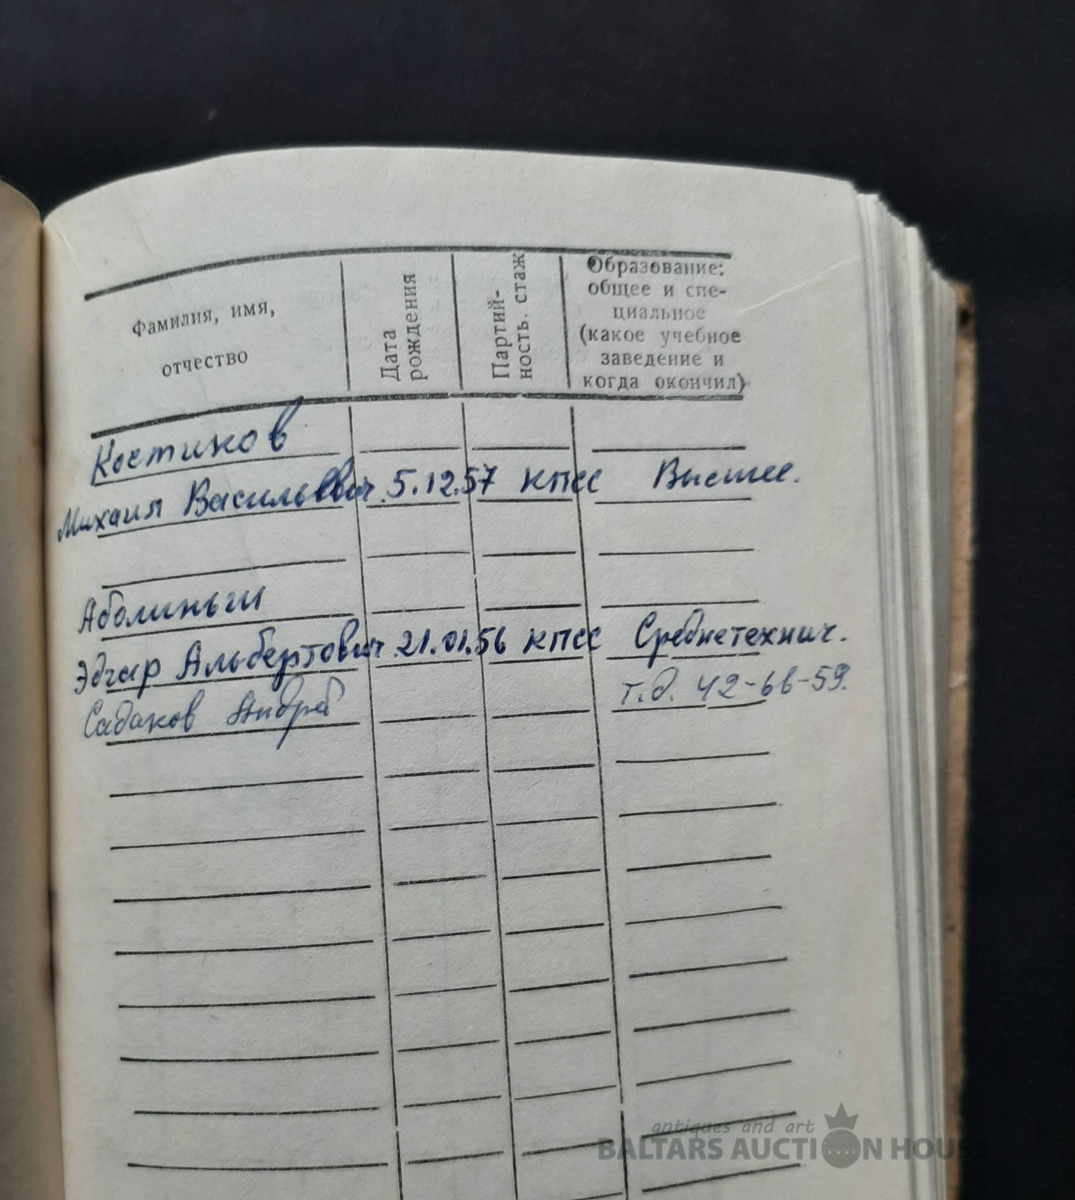 Фамилия, имя,
отчество
Дата
рождения
Партий-
ность. стаж
Образование:
общее и спе-
циальное
(какое учебное
заведение и
когда окончил)
Костиков
Михаил Васильевич 5.12.57 КПСС Высшее.
Аболиньш
Эдгар Альбертович 21.01.56 КПСС Среднетехнич.
Садаков Андрей т.д. 42-66-59.
antiques and art
BALTARS AUCTION HOUSE